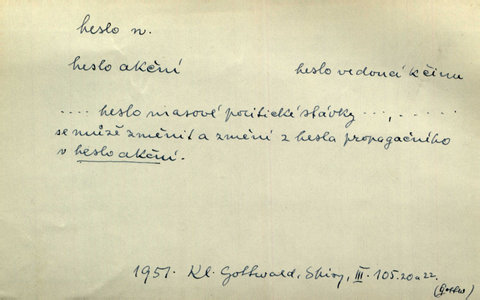 heslo n.
heslo akční heslo vedoucí k činu
.... heslo masové politické stávky ...,.....
se může změnit a změní z hesla propagačního
v heslo akční.
1951. Kl. Gottwald, Spisy, III. 105.20a22.
(Gottw)